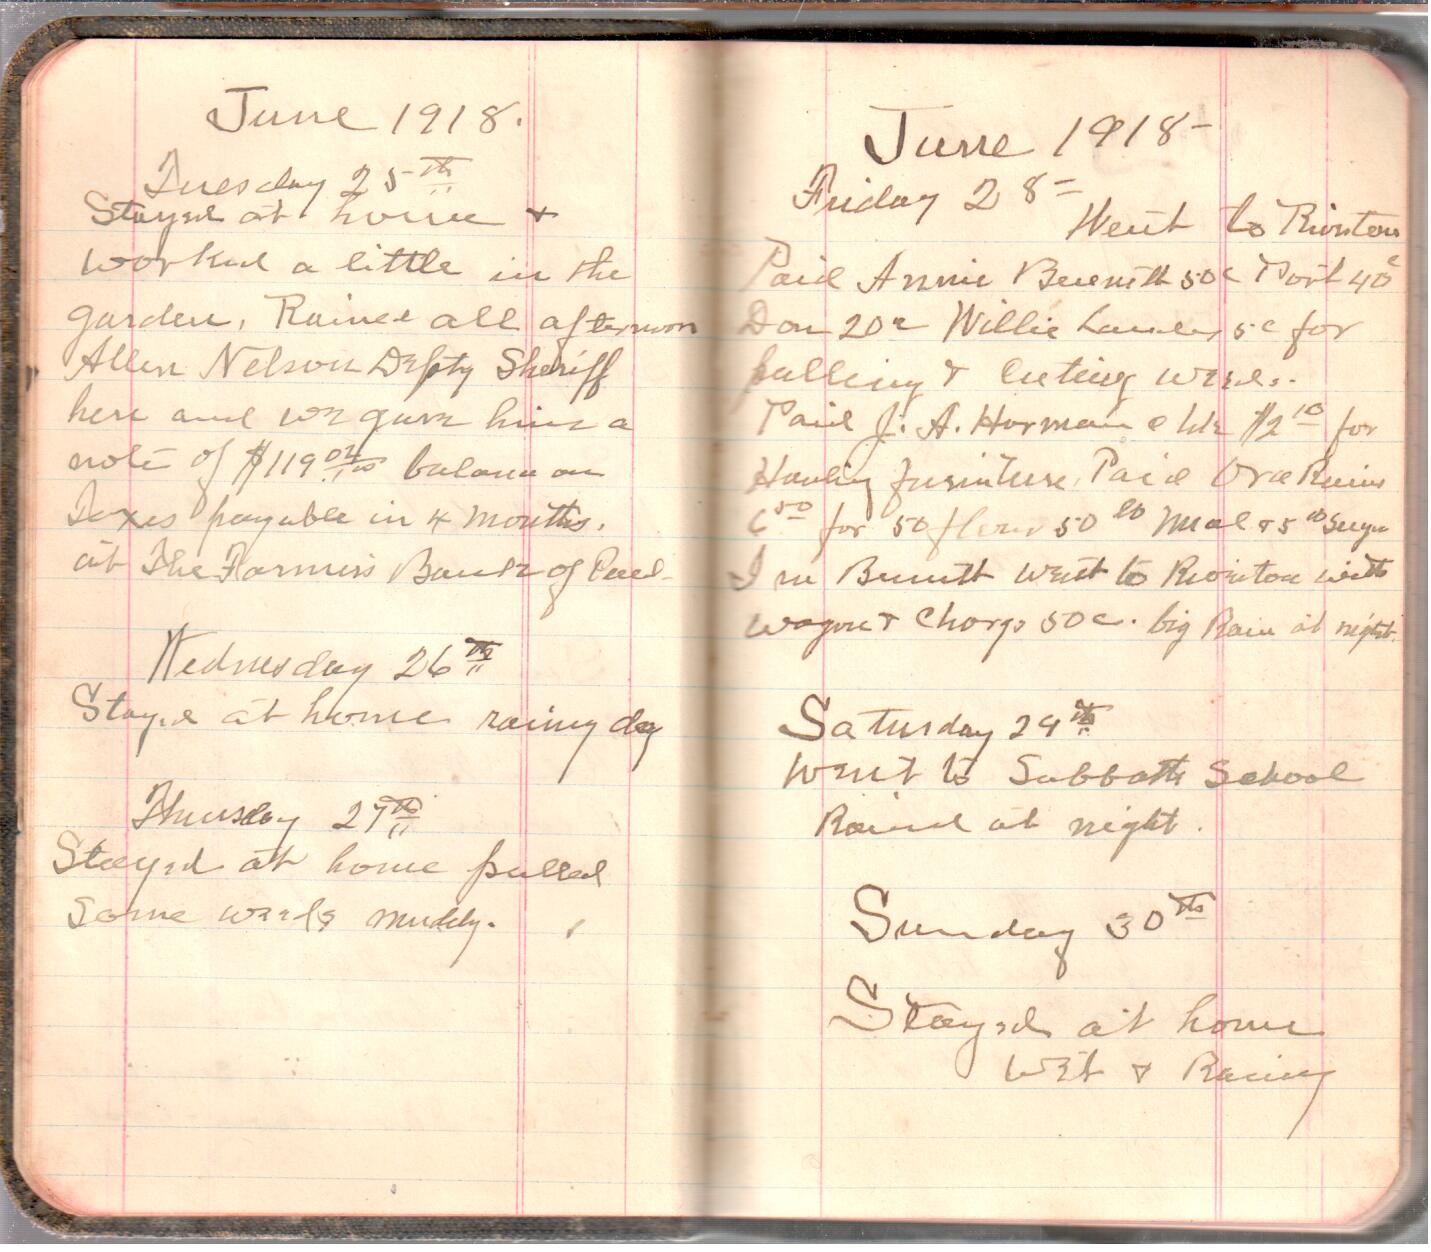 June 1918.
Tuesday 25th
Stayed at home &
worked a little in the
garden, Rained all afternoon
Allen Nelson Depty Sheriff
here and we gave him a
note of $119.02 balance on
Taxes payable in 4 months.
at The Farmers Bank of
Wednesday 26th
Stayed at home rainy day
Thursday 27th
Stayed at home pulled
Some weeds muddy.
June 1918-
Friday 28-
Went to Rionton
Paid Annie Bennett 50c Port 40c
Don 20c Willie 5c for
pulling & Cuting weeds.
Paid J. A. Horman $2.10 for
Hauling furniture. Paid Ora Rains
6.50 for 50 flour 50 lb Meal & 5 Sugar
Bennett went to Rionton with
wagon & Charge 50c. big Rain at night.
Saturday 29th
Went to Sabbath School
Raind at night.
Sunday 30th
Stayed at home
Wet & Rainy